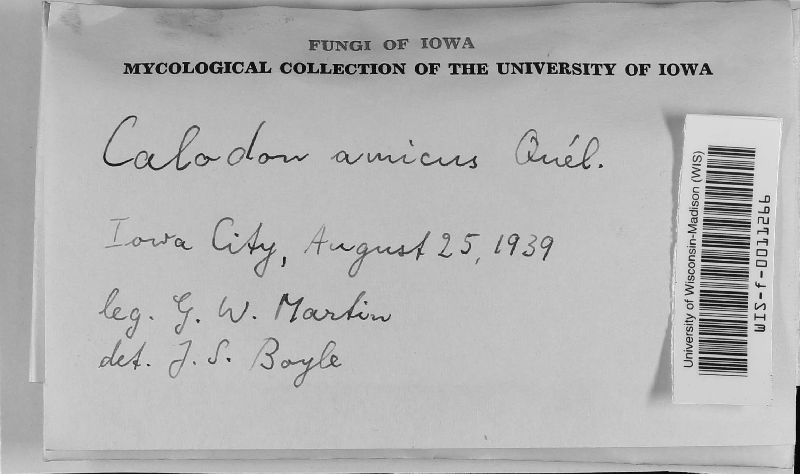 FUNGI OF IOWA
MYCOLOGICAL COLLECTION OF THE UNIVERSITY OF IOWA
Calodon amicus Quél.
Iowa City, August 25, 1939
leg. G. W. Martin
det. J. S. Boyle
University of Wisconsin-Madison (WIS)
WIS-f-0011266